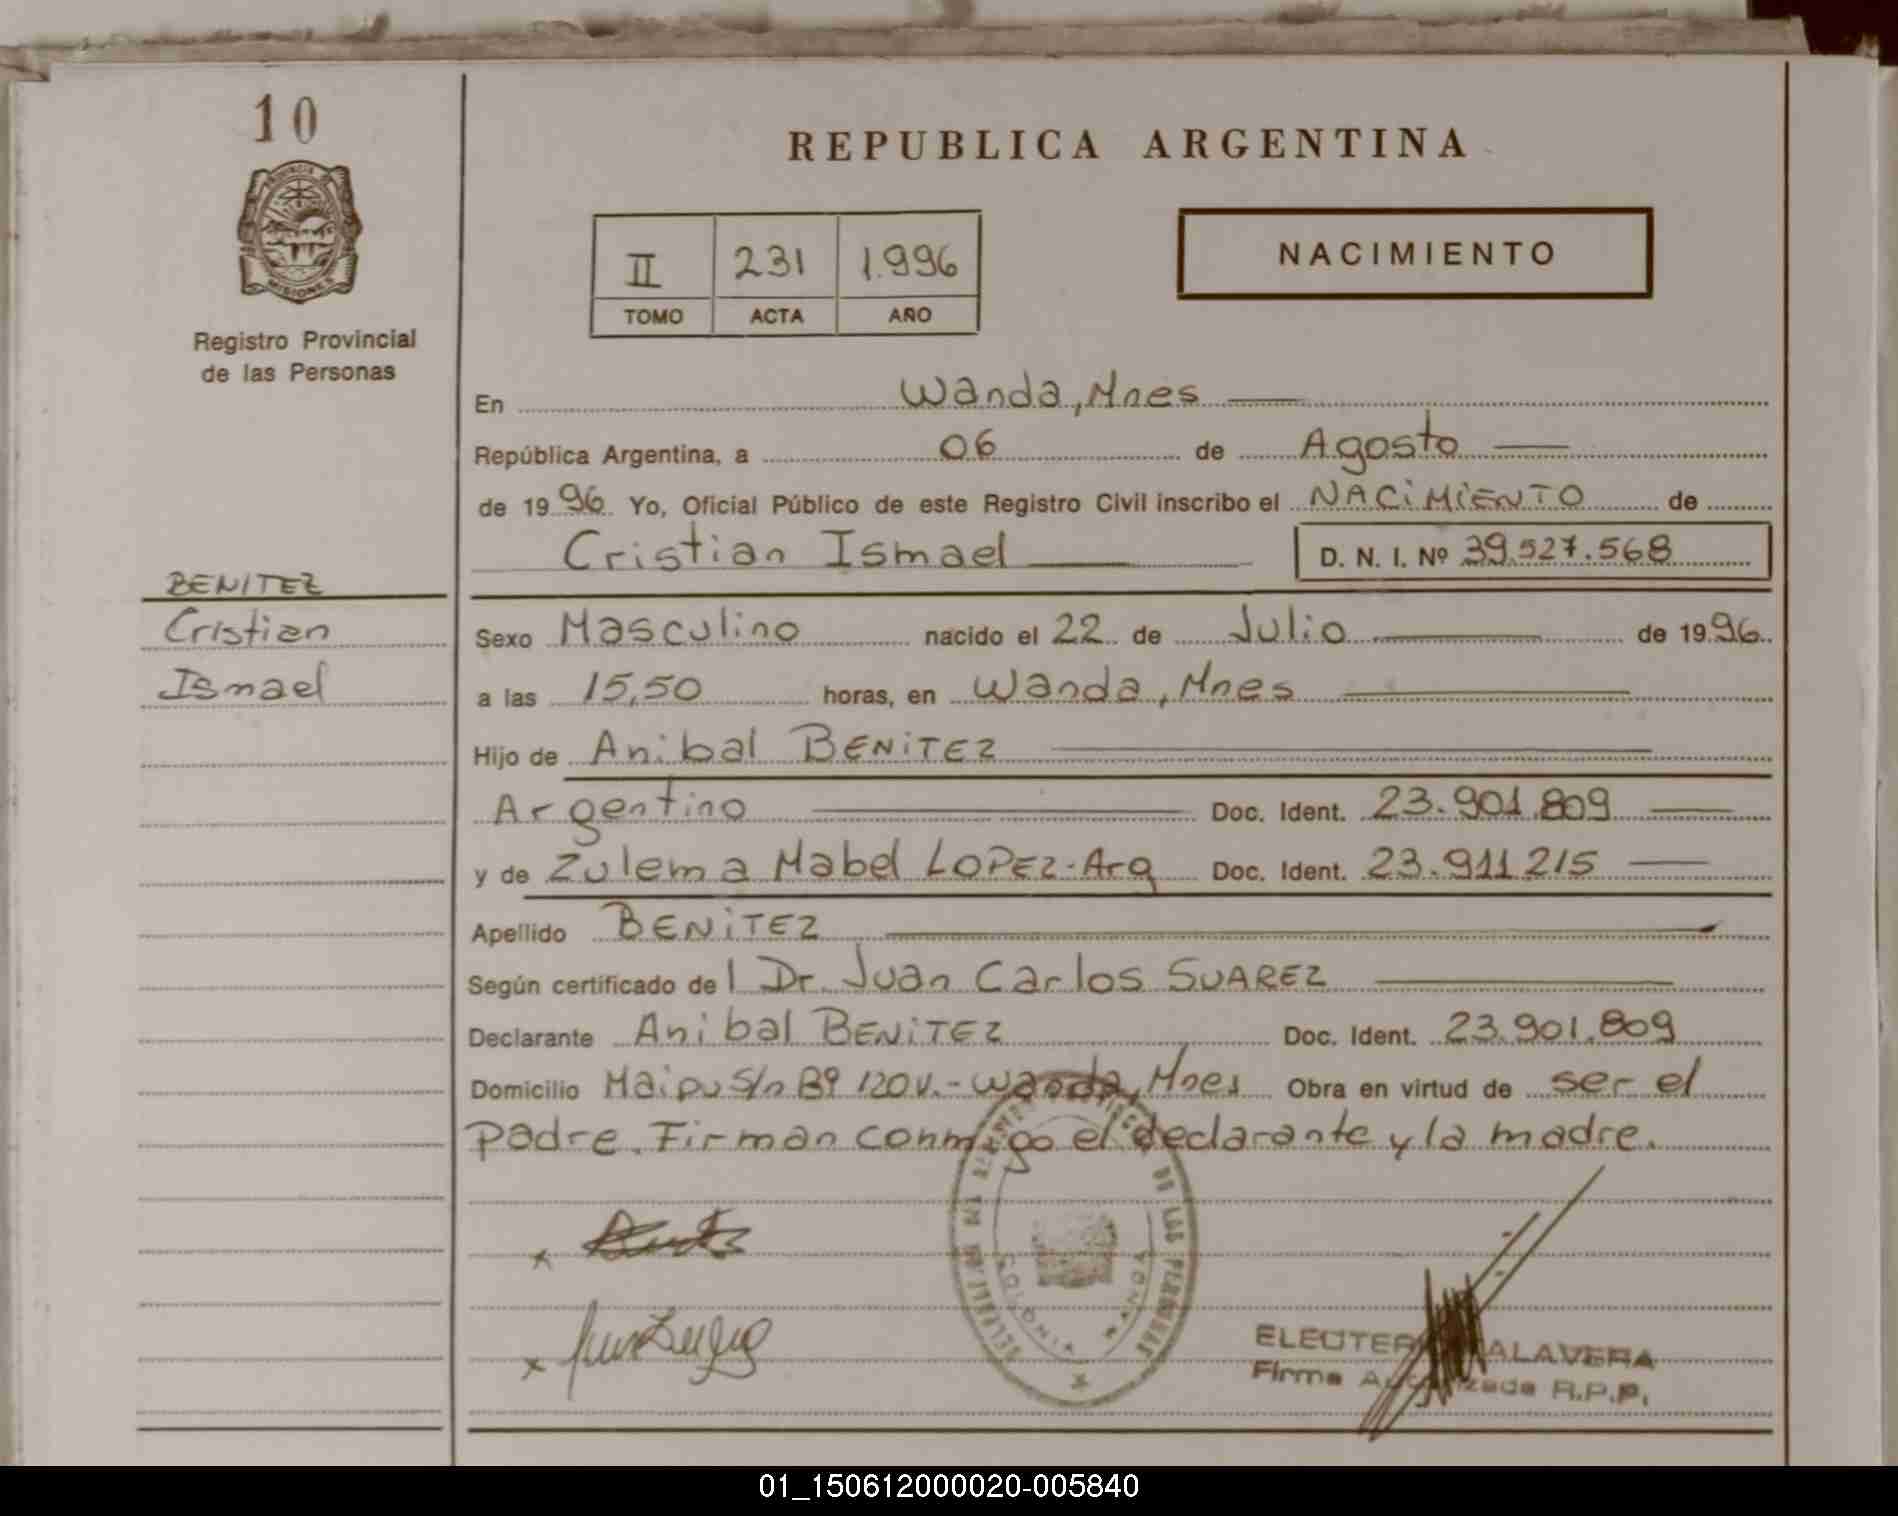 10
PROVINCIA DE
MISIONES
Registro Provincial
de las Personas
REPUBLICA ARGENTINA
II 231 1.996
TOMO ACTA AÑO
NACIMIENTO
En Wanda, Mnes
República Argentina, a 06 de Agosto
de 1996 Yo, Oficial Público de este Registro Civil inscribo el NACIMIENTO de
Cristian Ismael D. N. I. Nº 39.527.568
BENITEZ
Cristian
Ismael
Sexo Masculino nacido el 22 de Julio de 1996
a las 15,50 horas, en Wanda, Mnes
Hijo de Anibal BENITEZ
Argentino Doc. Ident. 23.901.809
y de Zulema Mabel LOPEZ-Arg Doc. Ident. 23.911.215
Apellido BENITEZ
Según certificado del Dr. Juan Carlos SUAREZ
Declarante Anibal BENITEZ Doc. Ident. 23.901.809
Domicilio Maipu S/n Bº 120 V.- Wanda, Mnes Obra en virtud de ser el
padre. Firman conmigo el declarante y la madre.
DE LAS PERSONAS
COLONIA WANDA
Firma R.P.P.
01_150612000020-005840